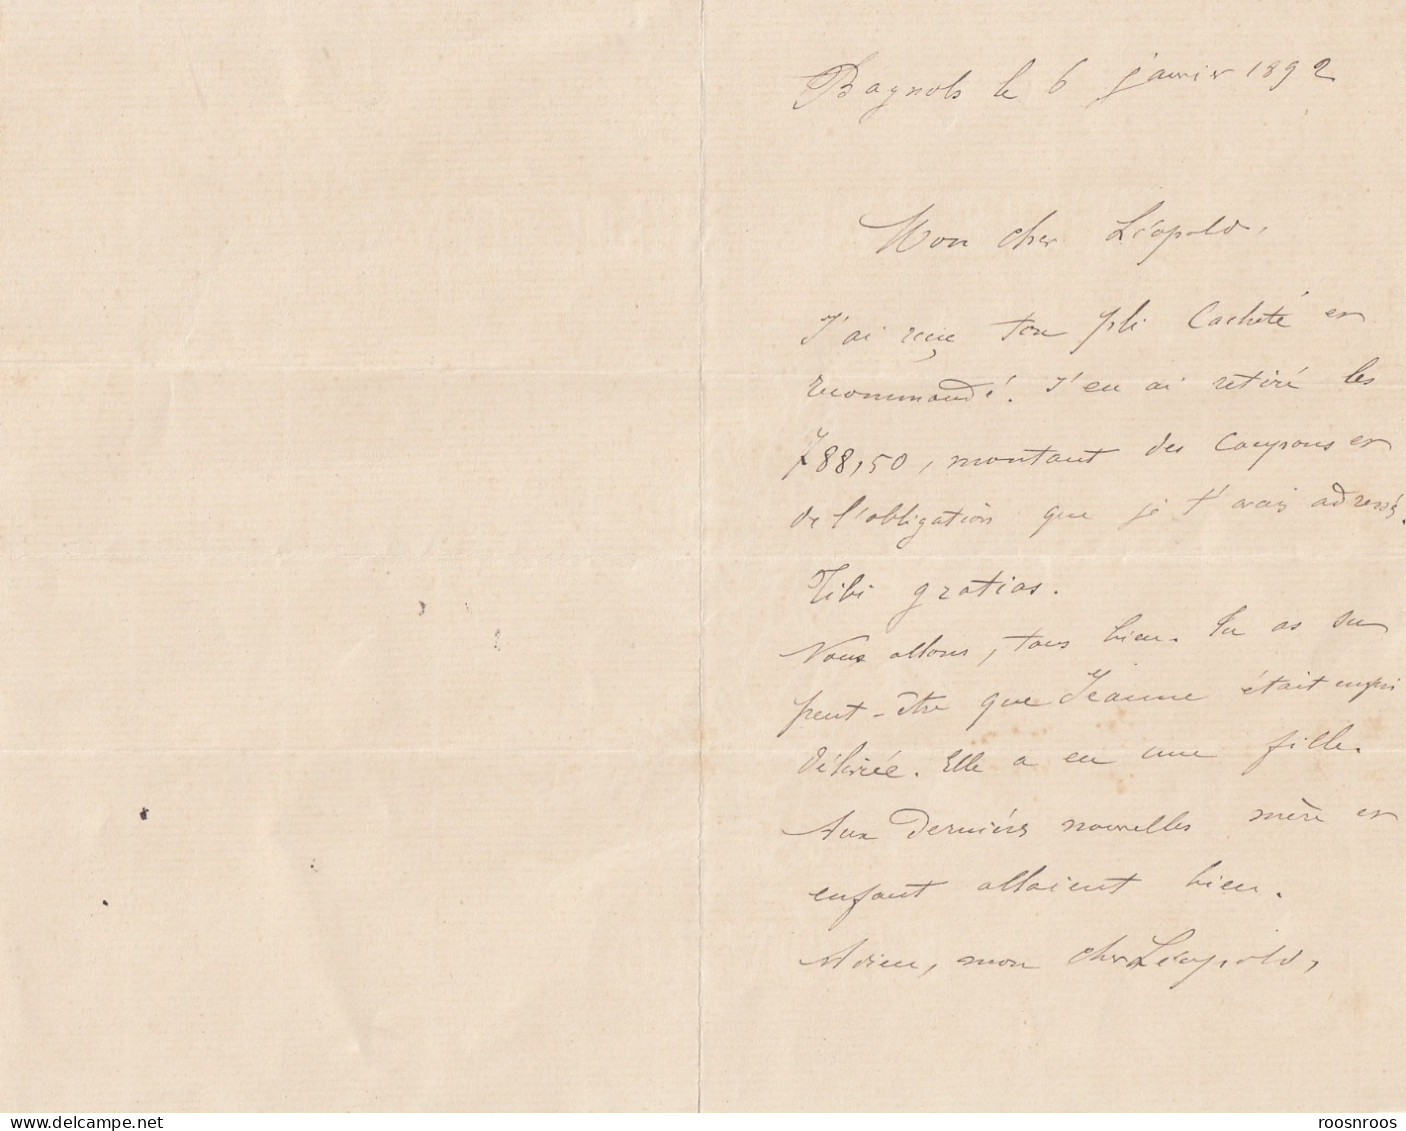 Bagnols le 6 janvier 1892
Mon cher Léopold,
J'ai reçu ton pli cacheté et
recommandé. J'en ai retiré les
788,50, montant des coupons et
de l'obligation que je t'avais adressés.
Tibi gratias.
Nous allons, tous bien. Tu as su
peut-être que Jeanne était
délivrée. Elle a eu une fille.
Aux dernières nouvelles mère et
enfant allaient bien.
Adieu, mon cher Léopold,
www.delcampe.net
roosnroos